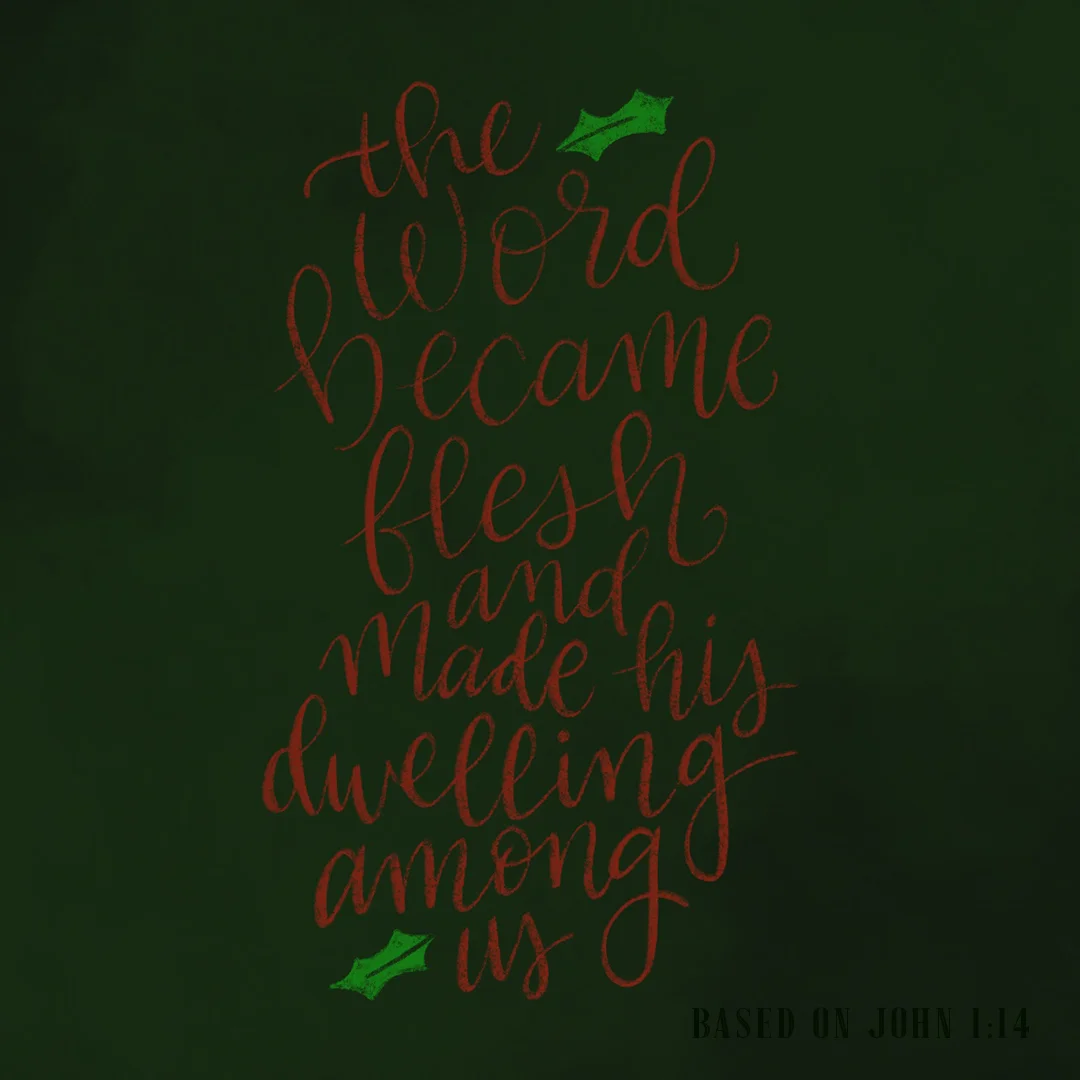 the
Word
became
flesh
and
made his
dwelling
among
us
BASED ON JOHN 1:14